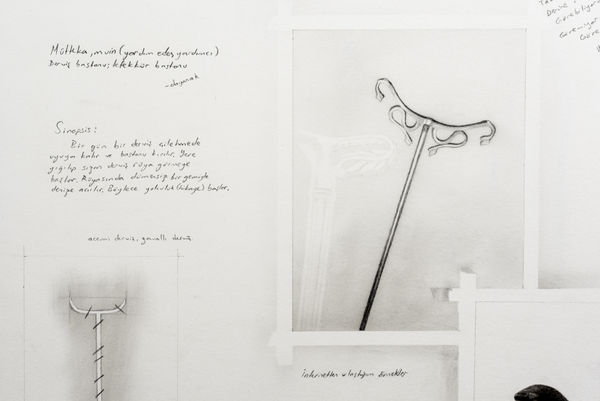 Mütekka, muin (yardım eden, yardımcı)
Derviş bastonu; tefekkür bastonu
~dayanak
Sinopsis:
Bir gün bir derviş çilehanede
uyuya kalır ve bastonu kırılır. Yere
yığılıp sızan derviş rüya görmeye
başlar. Rüyasında dümensiz bir gemiyle
denize açılır. Böylece yolculuk (hikaye) başlar.
acemi derviş, zavallı derviş.
internetten ulaştığım örnekler
Derviş
Görebiliyor
Göremiyor
Göre